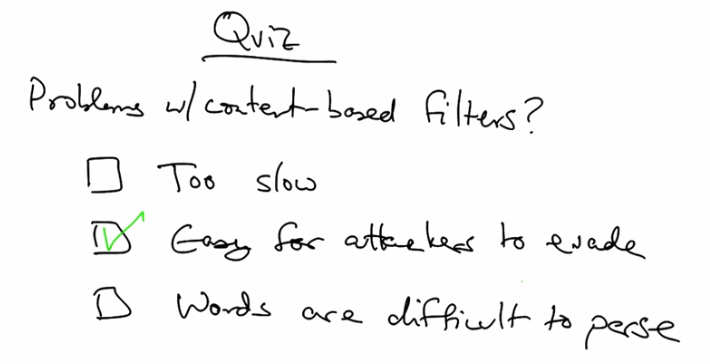 Quiz
Problems w/ content-based filters?
Too slow
Easy for attackers to evade
Words are difficult to parse